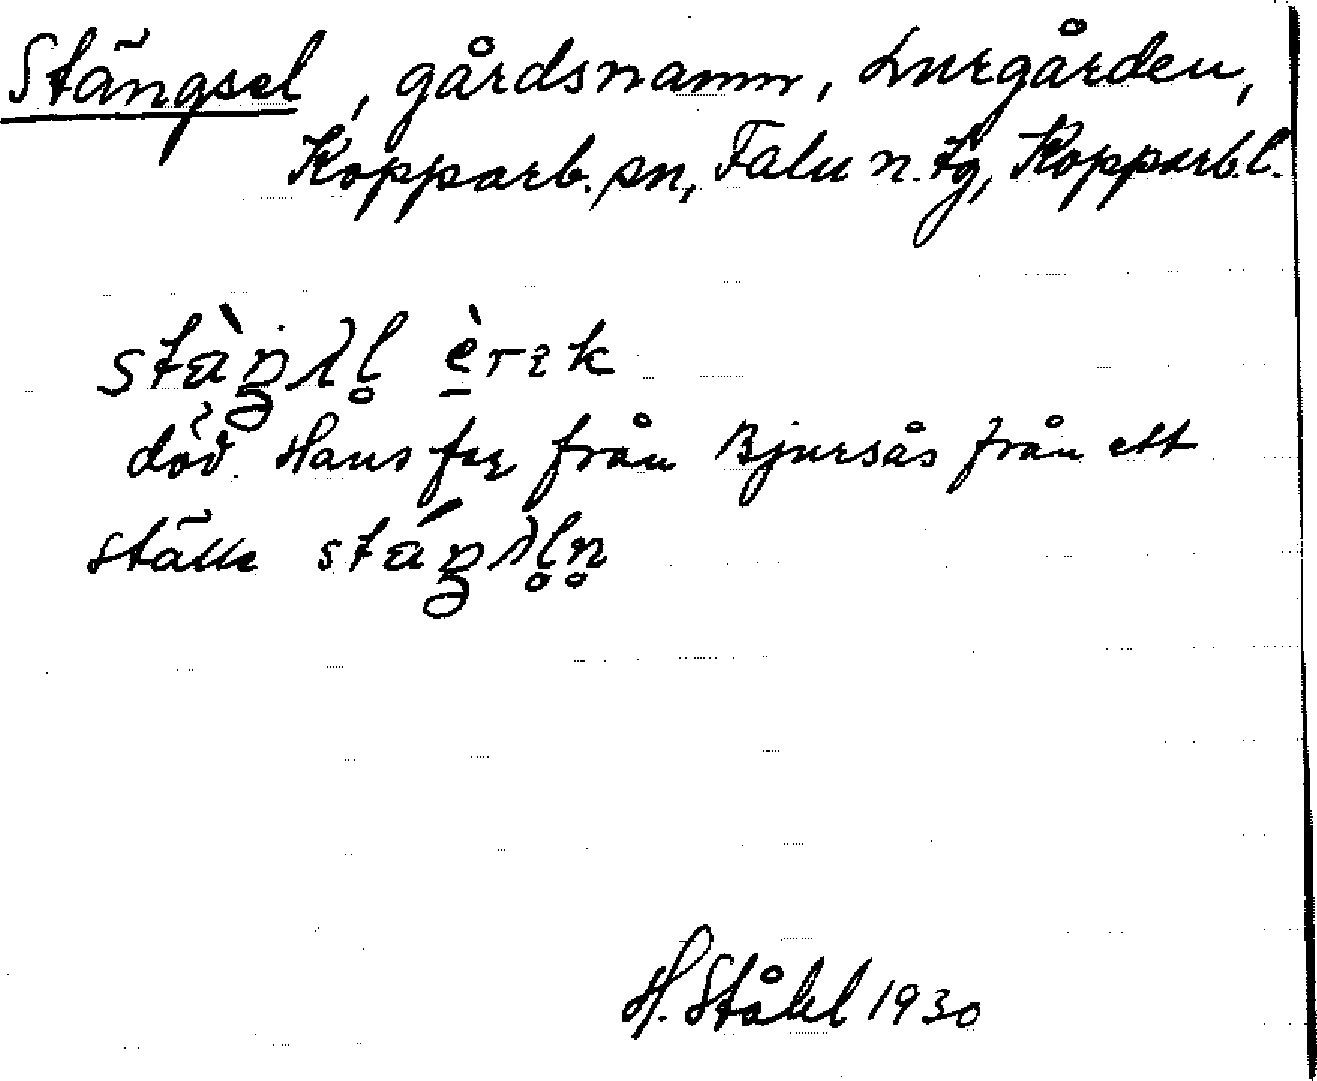 Stängsel, gårdsnamn, Lurgården,
Kopparb. sn, Falu n. tg, Kopparb.l.
död. Hans far från Bjursås från ett
ställe
H. Ståhl 1930